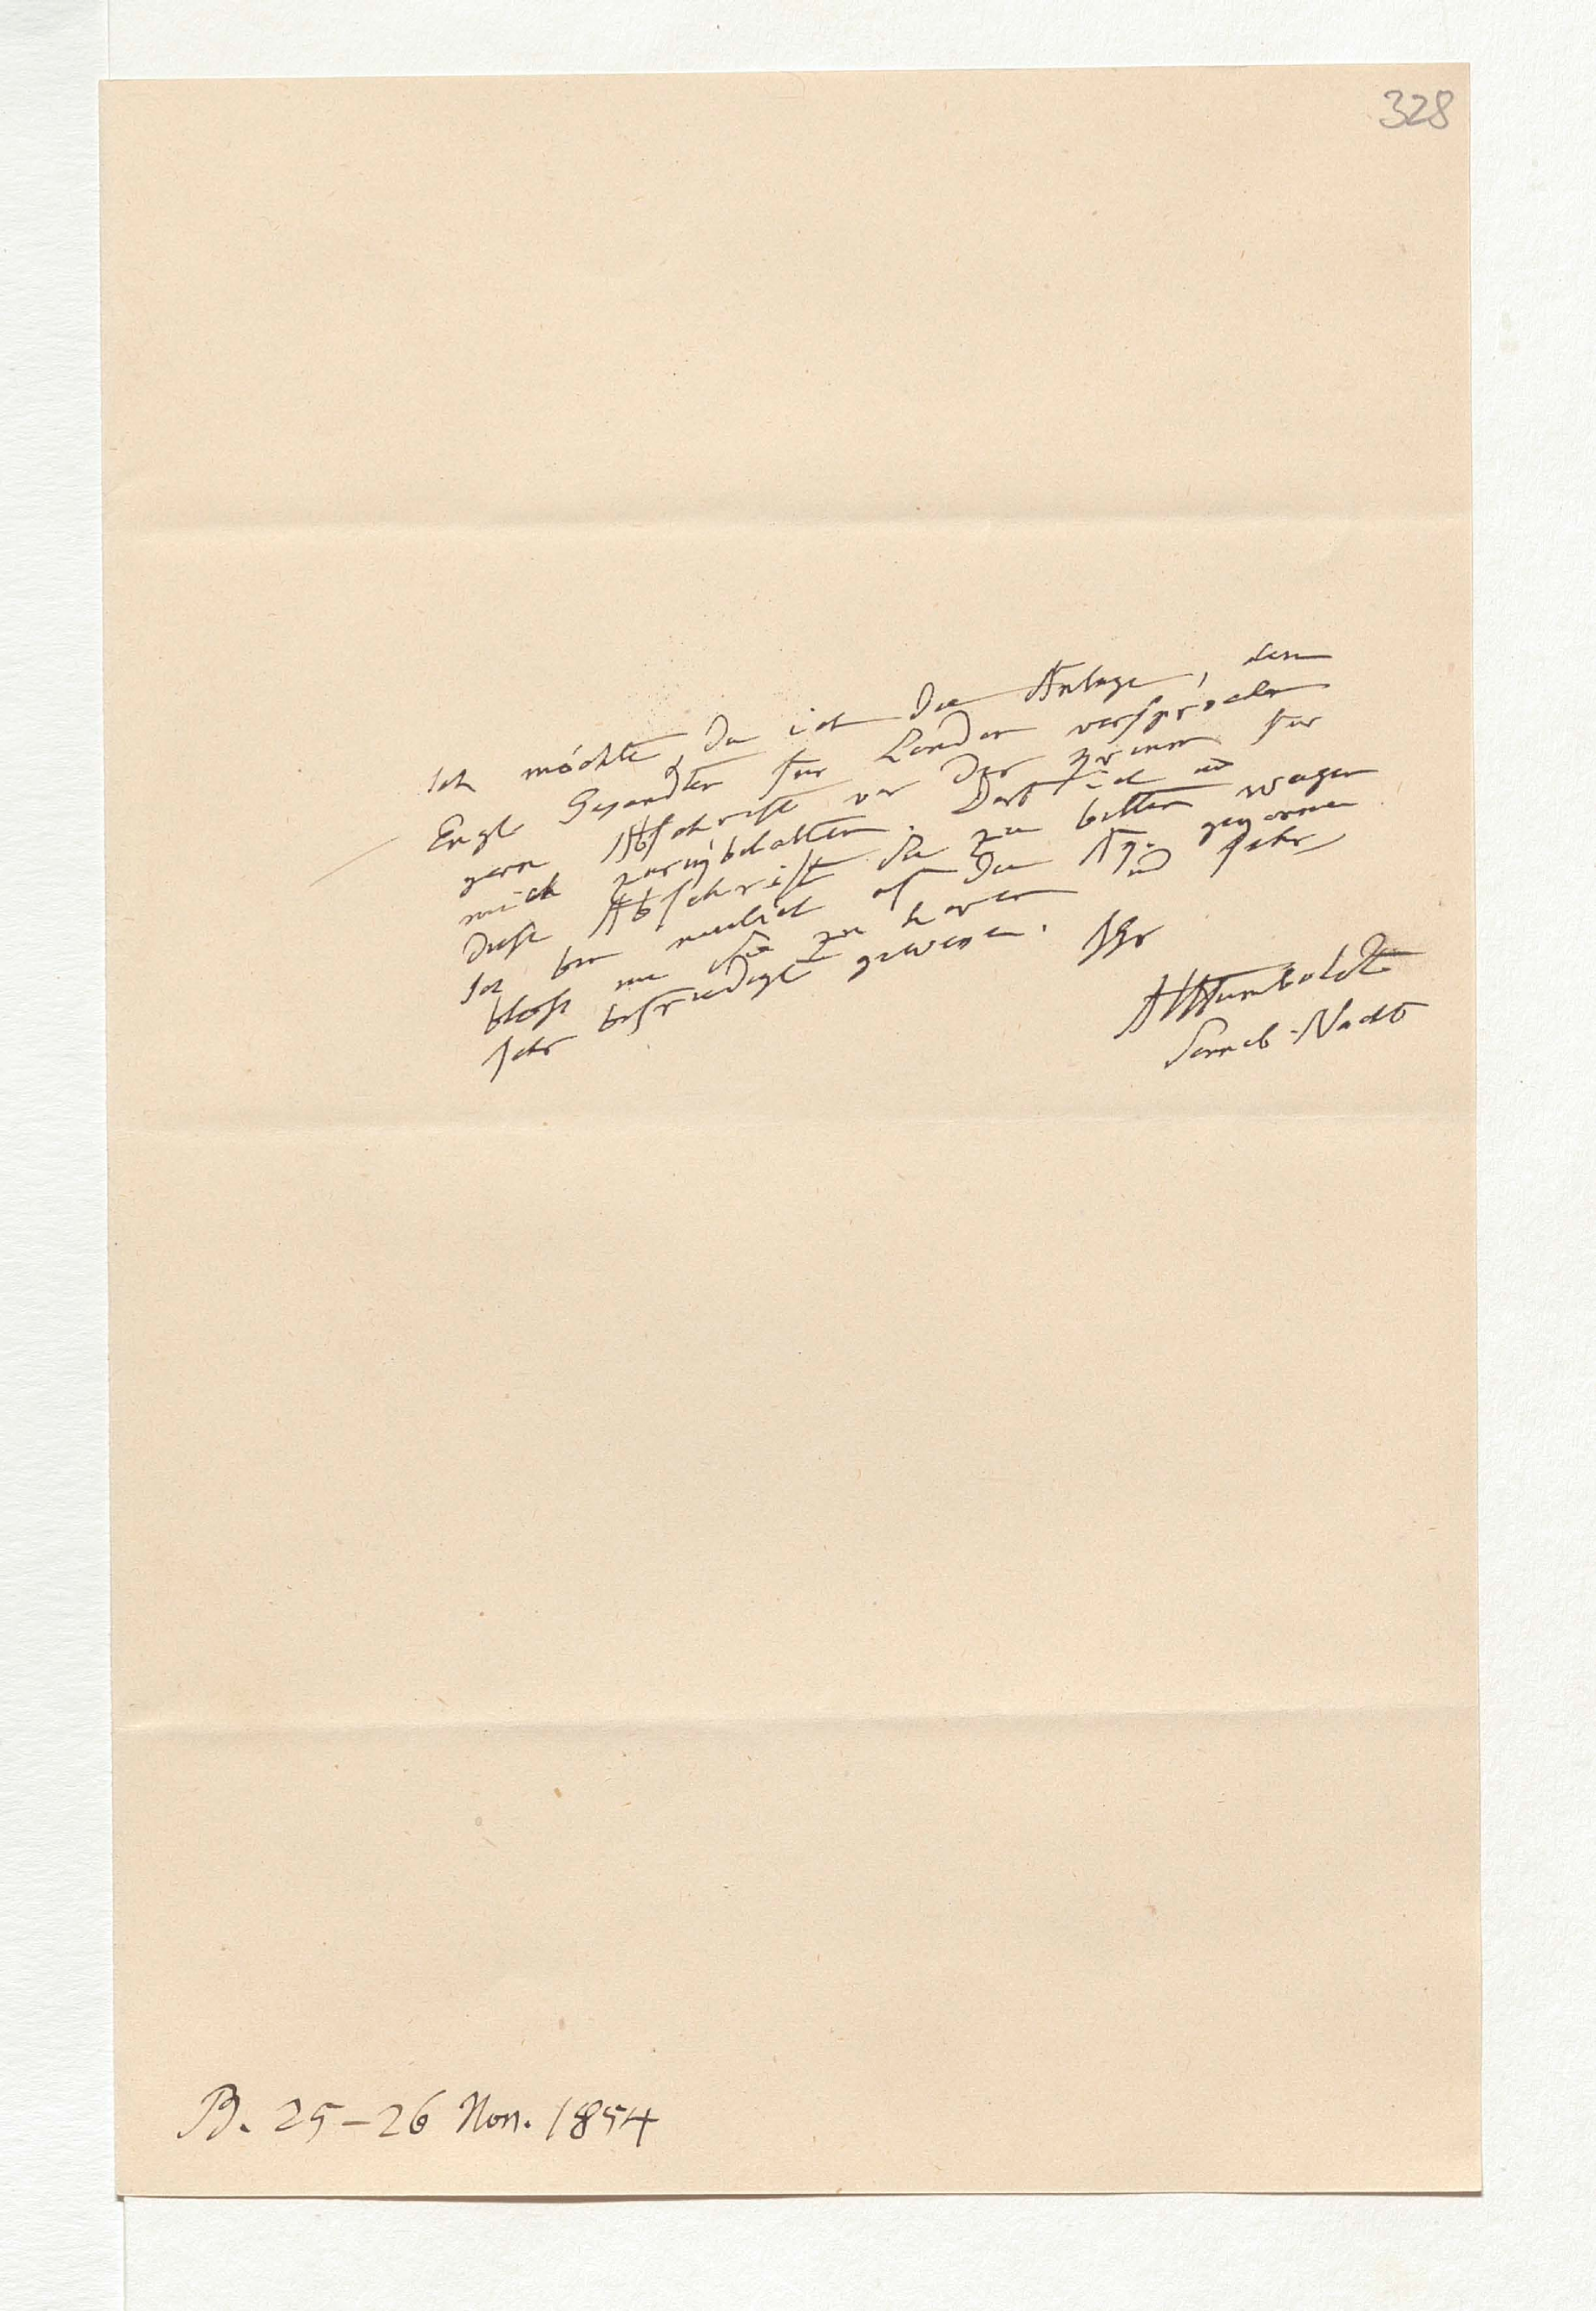 328
Ich möchte, da ich die Anlage, dem
Engl. Gesandten für London versprochen
gern Abschrift von der zweien für
mich zurükbehalten. Darf ich um
diese Abschrift Sie zu bitten wagen
Ich bin neulich auf der Ag. gewesen
bloss um Sie zu hören und sehr,
sehr befriedigt gewesen. Ihr
AvHumboldt
Sonnab. Nacht
B. 25–26 Nov. 1854